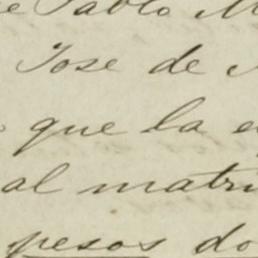 e Pablo M
Jose de
que la e
al matri
pesos do